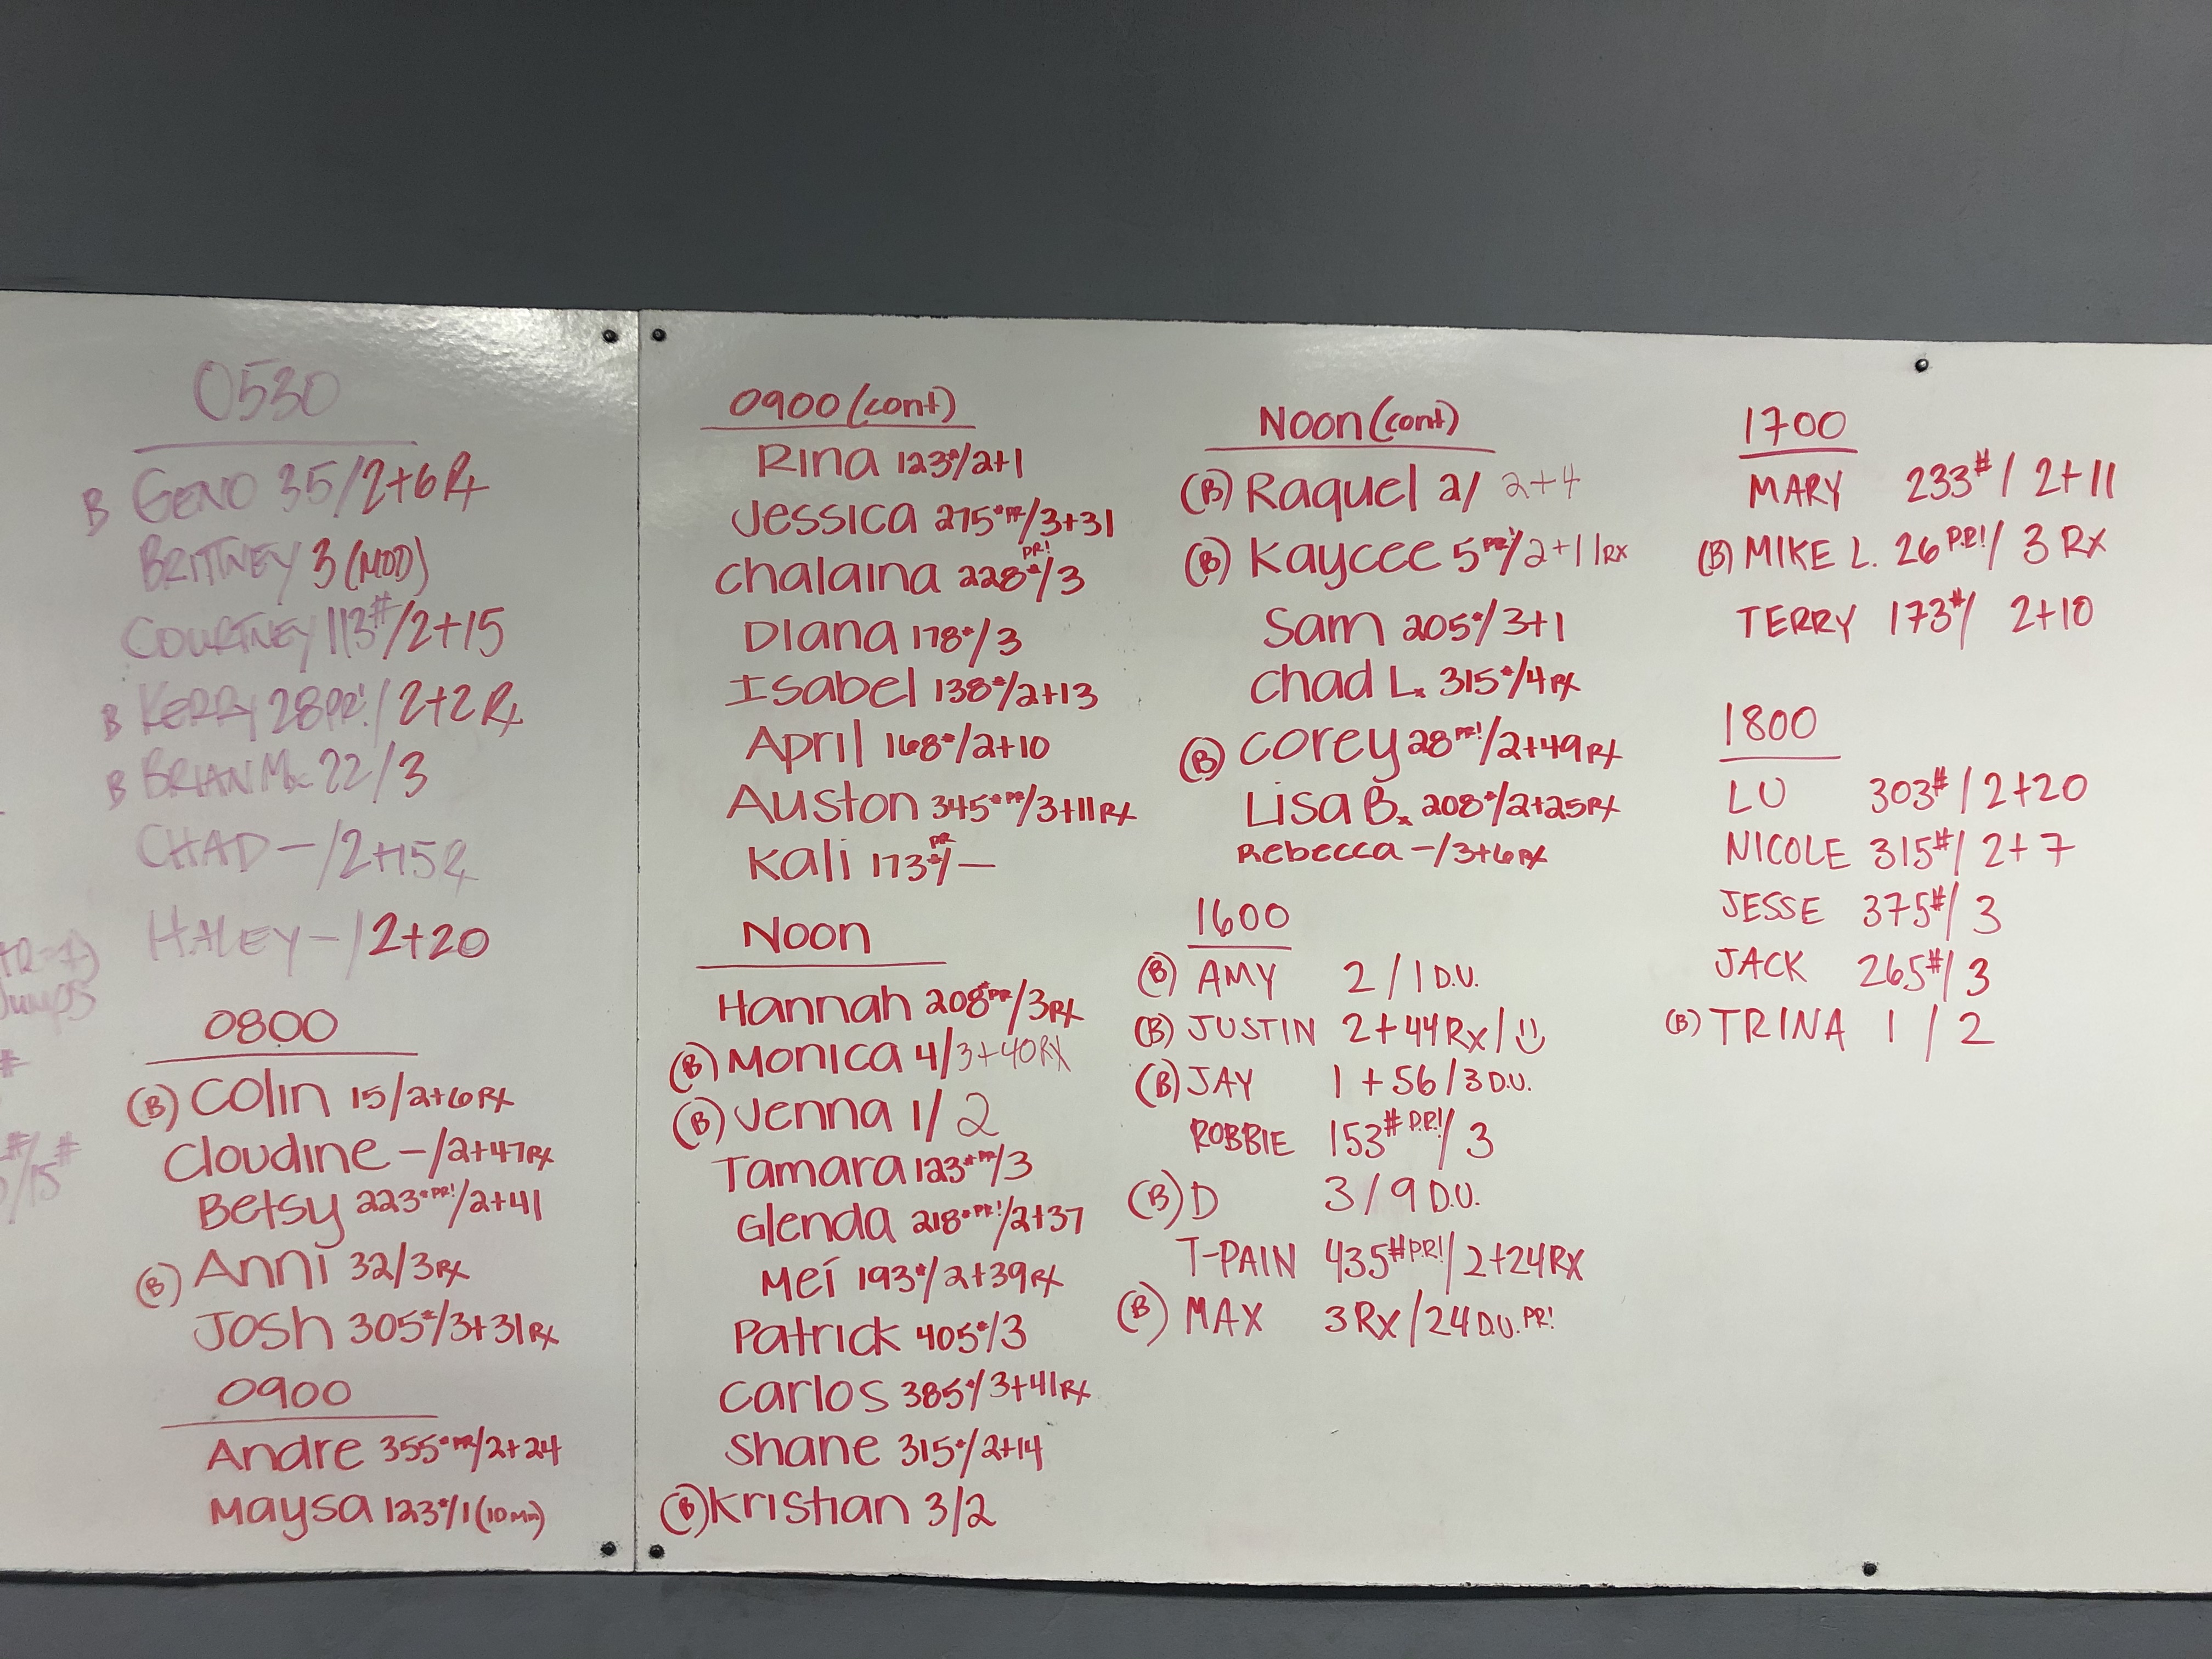 0530
B GENO 35/2+6 Rx
BRITTNEY 3 (MOD)
COURTNEY 113#/2+15
B KERRY 28 PR!/2+2 Rx
B BRIAN Mc 22/3
CHAD -/2+15 Rx
HALEY -/2+20
Jumps
#
/15#
0800
(B) Colin 15/2+6 Rx
Cloudine -/2+47 Rx
Betsy 223# PR!/2+41
(B) Anni 32/3 Rx
Josh 305#/3+31 Rx
0900
Andre 355# PR/2+24
Maysa 123#/1 (10 Min)
0900 (cont)
Rina 123#/2+1
Jessica 275# PR/3+31
Chalaina 228# PR!/3
Diana 178#/3
Isabel 138#/2+13
April 168#/2+10
Auston 345# PR/3+11 Rx
Kali 173# PR/-
Noon
Hannah 208# PR/3 Rx
(B) Monica 4/3+40 RX
(B) Jenna 1/2
Tamara 123# PR/3
Glenda 218# PR!/2+37
Mei 193#/2+39 Rx
Patrick 405#/3
Carlos 385#/3+41 Rx
Shane 315#/2+14
(B) Kristian 3/2
Noon (cont)
(B) Raquel 2/ 2+4
(B) Kaycee 5 PR!/2+11 RX
Sam 205#/3+1
Chad L. 315#/4 Rx
(B) Corey 28 PR!/2+49 Rx
Lisa B. 208#/2+25 Rx
Rebecca -/3+6 Rx
1600
(B) AMY 2/1 D.U.
(B) JUSTIN 2+44 Rx/ :)
(B) JAY 1+56/3 D.U.
ROBBIE 153# P.R!/3
(B) D 3/9 D.U.
T-PAIN 435# P.R!/2+24 RX
(B) MAX 3 RX/24 D.U. PR!
1700
MARY 233#/2+11
(B) MIKE L. 26 P.R!/3 RX
TERRY 173#/2+10
1800
LU 303#/2+20
NICOLE 315#/2+7
JESSE 375#/3
JACK 265#/3
(B) TRINA 1/2